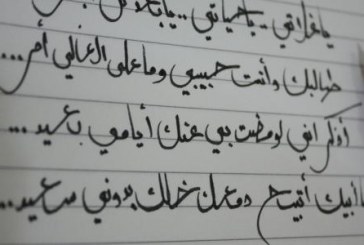 ياغلاتي .. ياحياتي .. يا
طالبك وأنت حبيبي وما على الغالي أمر...
أذكر اني لو مضت بي عنك أيامي بعيد...
أتبيح دمعك خلك بدوني سعيد..